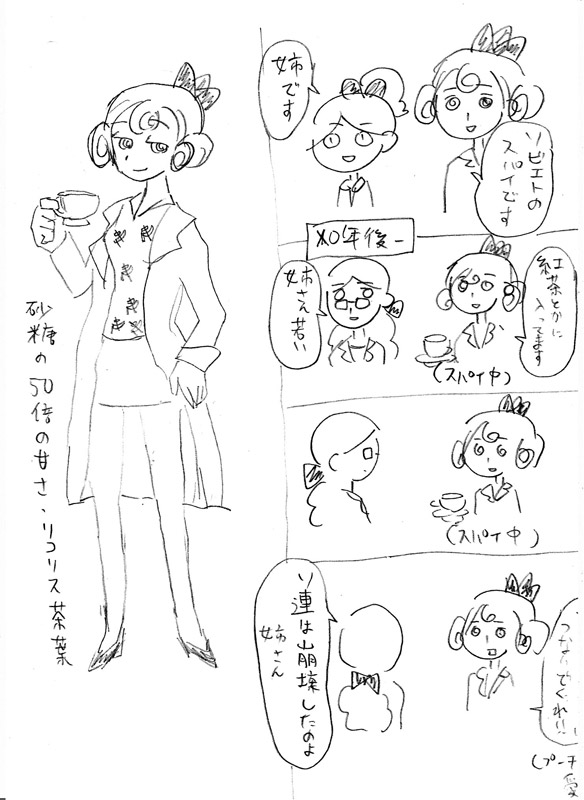 ソビエトの
スパイです
姉です
X0年後ー
紅茶とかに
入ってます
(スパイ中)
姉さん若い
(スパイ中)
ソ連は崩壊したのよ
姉さん
砂糖の50倍の甘さ、リコリス茶葉